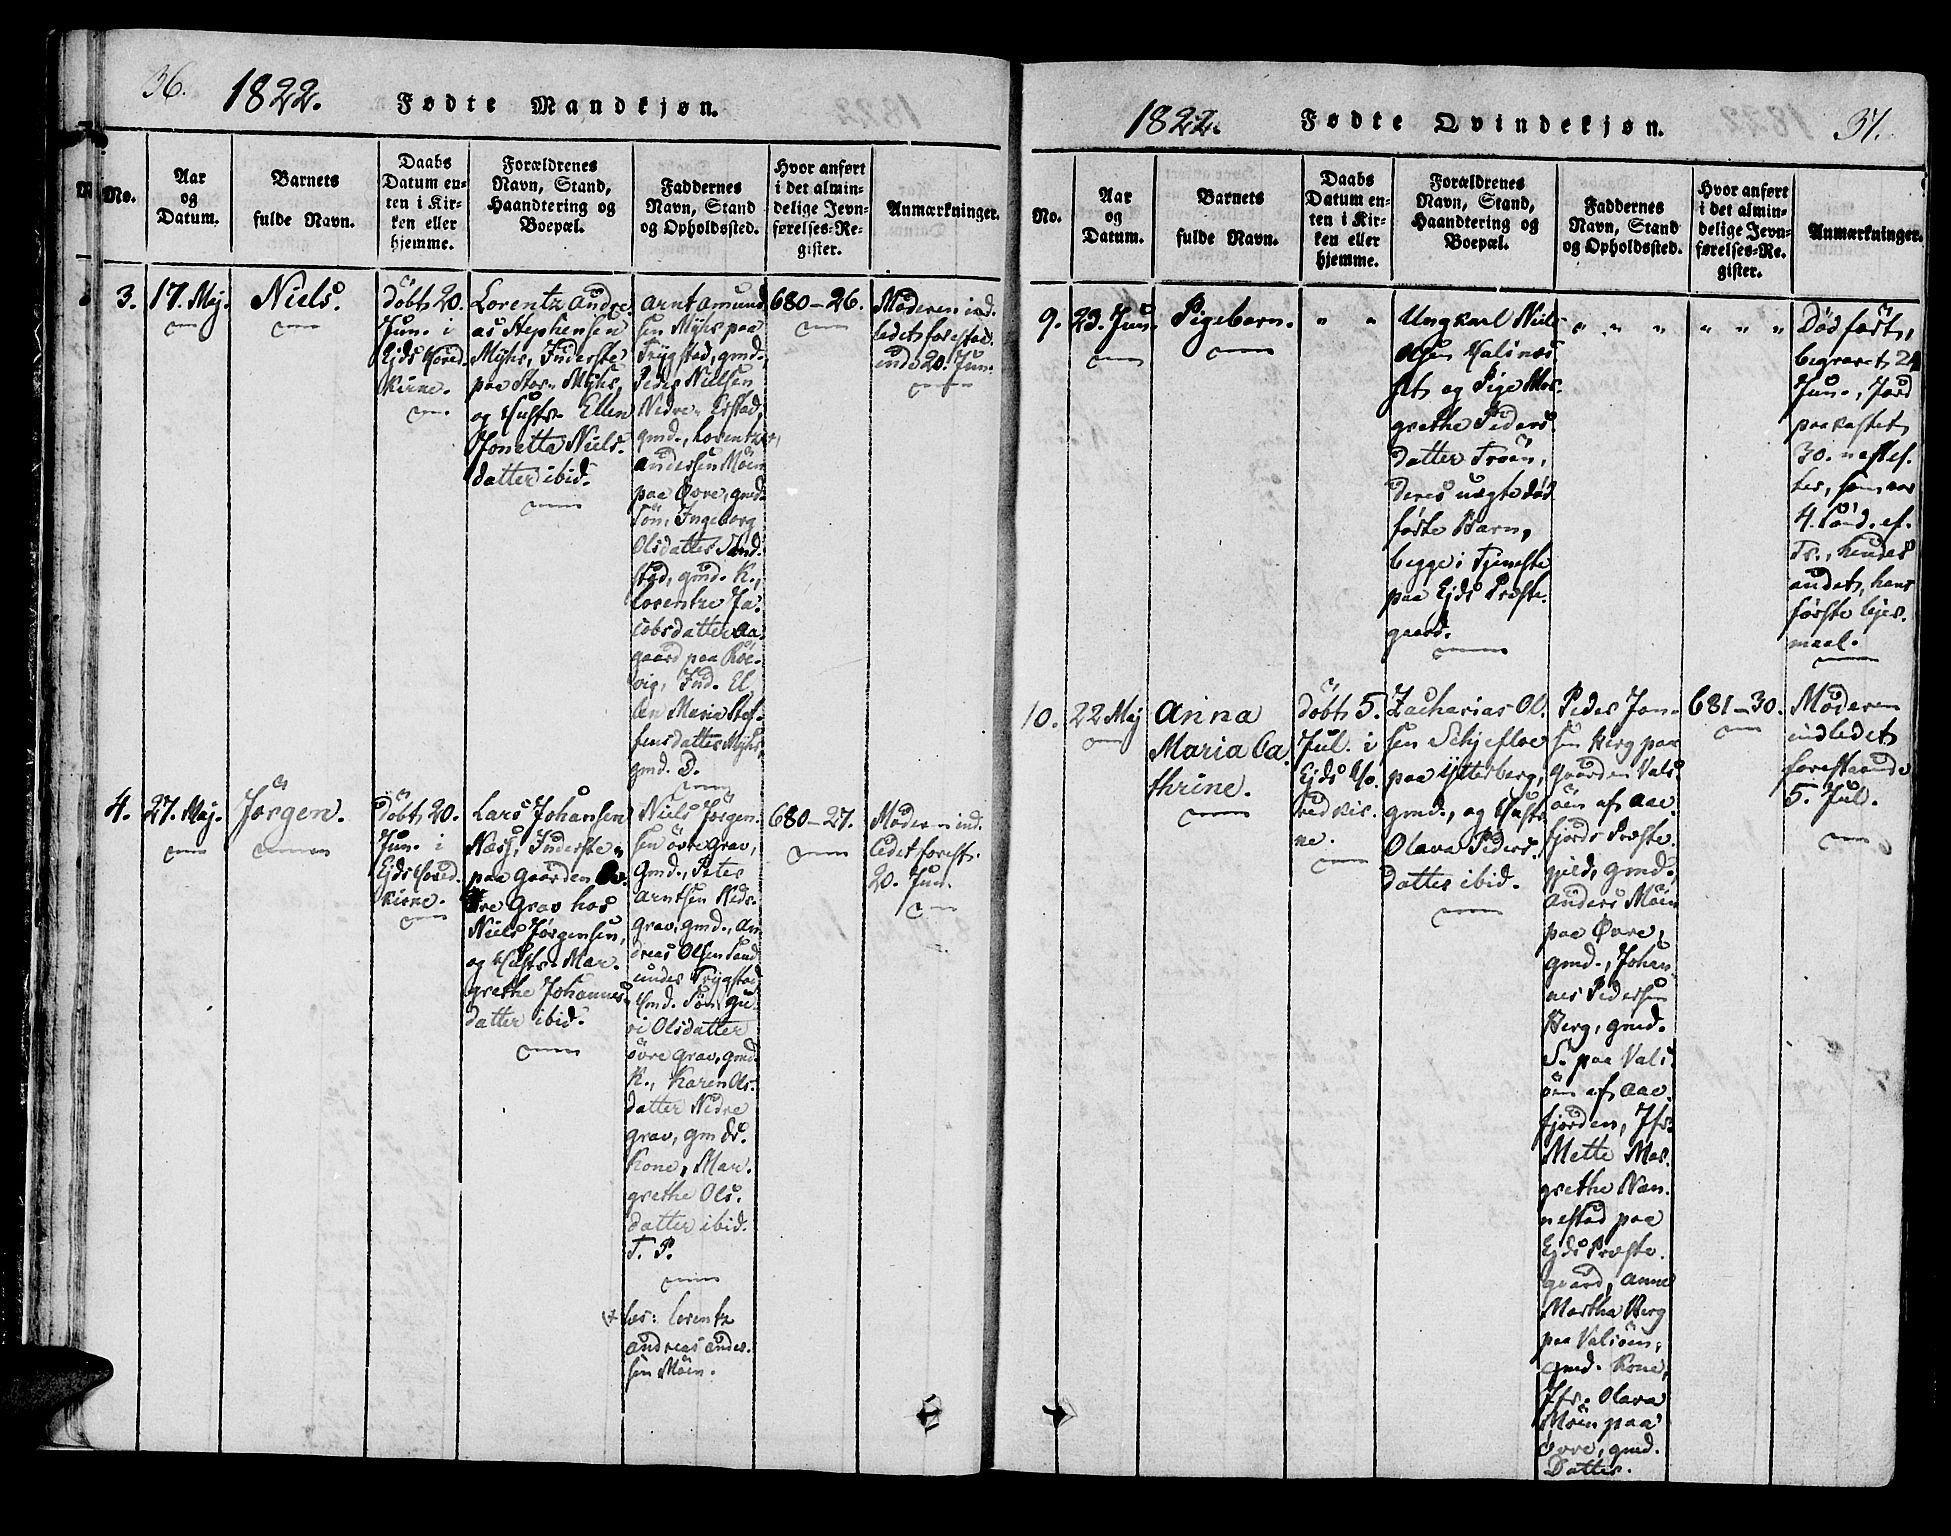 36.
1822.
Fødte Mandkjøn.
No.
Aar
og
Datum.
Barnets
fulde Navn.
Daabs
Datum en-
ten i Kir-
ken eller
hjemme.
Forældrenes
Navn, Stand,
Haandtering og
Boepæl.
Faddernes
Navn, Stand
og Opholdssted.
Hvor anført
i det almin-
delige Jevn-
førelses-Re-
gister.
Anmærkninger.
3.
17. Maj.
Niels.
döbt 20.
Jun. i
Ejds Hoved
kirke.
Lorentz Andre
as Stephensen
Myhr, Inderste
paa Stor-Myhr,
og Hustr. Ellen
Jonetta Niels-
datter ibid.
Arnt Amund
sen Myhr paa
Trygstad, gmd.,
Peder Nielsen
Nedre-Erstad,
gmd., Lorentz
Andersen Möen
paa Øvre, gmd.
Sön, Ingeborg
Olsdatter Sand-
stad, gmd. K.,
Lorentze Ja-
cobsdatter Aa-
gaard paa
Ind. El
len Maria Stef-
fensdatter Myhr,
gmd. D.
680-26.
Moderen ind-
ledet forestaa-
ende 20. Jun.
4.
27. Maj.
Jörgen.
Döbt 20.
Jun. i
Ejds Hoved
kirke.
Lars Johansen
Næss, Inderste
paa Gaarden Öv-
re Grav hos
Niels Jörgensen,
og Hustr. Mar-
grethe Johannes-
datter ibid.
Niels Jörgen-
sen övre Grav,
Gmd., Peter
Arntsen Nedr-
Grav, gmd., An
dreas Olsen Sand
under Trygstad
Hmd. Sön, Gu-
ri Olsdatter
övre Grav, gmd.
K., Karen Ols-
datter Nedre
Grav, gmds.
Kone, Mar-
grethe Ols-
datter ibid.
T. P.
læs: Lorentz
Andreas Ander-
sen Möen.
680-27.
Moderen ind-
ledet forest.
20. Jun.
1822.
Fødte Qvindekjøn.
37.
No.
Aar
og
Datum.
Barnets
fulde Navn.
Daabs
Datum en-
ten i Kir-
ken eller
hjemme.
Forældrenes
Navn, Stand,
Haandtering og
Boepæl.
Faddernes
Navn, Stand
og Opholdssted.
Hvor anført
i det almin-
delige Jevn-
førelses-Re-
gister.
Anmærkninger.
9.
23. Jun.
Pigebarn.
" "
Ungkarl Niels
Olsen Halsnæs
og Pige Mar-
grethe Peders
datter Tröen,
deres uægte död
födte Barn,
begge i Tjeneste
paa Ejds Præste-
gaard.
" " "
" " "
Död född,
begravet 24
Jun., Jord
paakastet
30. næstef-
ter, som var
4. Sönd. ef.
Tr., hendes
andet, hans
förste Lejer-
maal.
10.
22 Maj
Anna
Maria Ca-
thrine.
döbt 5.
Jul. i
Ejds Ho-
vedkir-
ke.
Zacharias Ol-
sen Schjefloe
paa Ytterberg,
gmd., og Hustr.
Olava Peders-
datter ibid.
Peder Jan-
sen Berg paa
Gaarden Vals
öen af Aae
fjords Præste-
gjeld, gmd.
Anders Möen
paa Øvre,
gmd., Johan-
nes Pedersen
Berg, gmd.
S. paa Vals-
öen af Aae-
fjorden, Jfr.
Mette Mar-
grethe Nan-
nestad paa
Ejds Præste-
gaard, Anne
Martha Berg
paa Valsöen,
gmd. Kone,
Jfr. Olava
Möen paa
Övre, gmd.
Datter.
681-30.
Moderen
indledet
forestaaende
5. Jul.